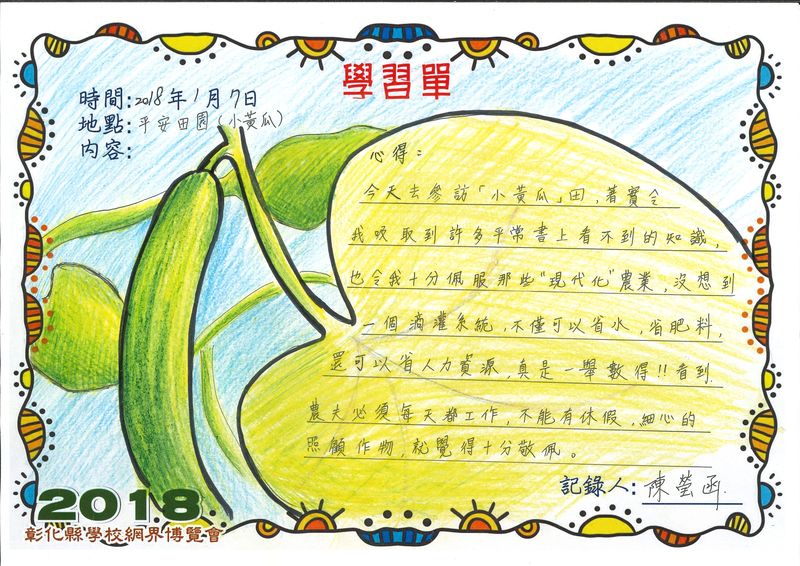 學習單
時間:2018年1月7日
地點:平安田園(小黃瓜)
內容:
心得:
今天去參訪「小黃瓜」田,著實令
我吸取到許多平常書上看不到的知識,
也令我十分佩服那些"現代化"農業,沒想到
一個滴灌系統,不僅可以省水,省肥料,
還可以省人力資源,真是一舉數得!!看到
農夫必須每天都工作,不能有休假,細心的
照顧作物,就覺得十分敬佩。
記錄人:陳瑩函
2018
彰化縣學校網界博覽會